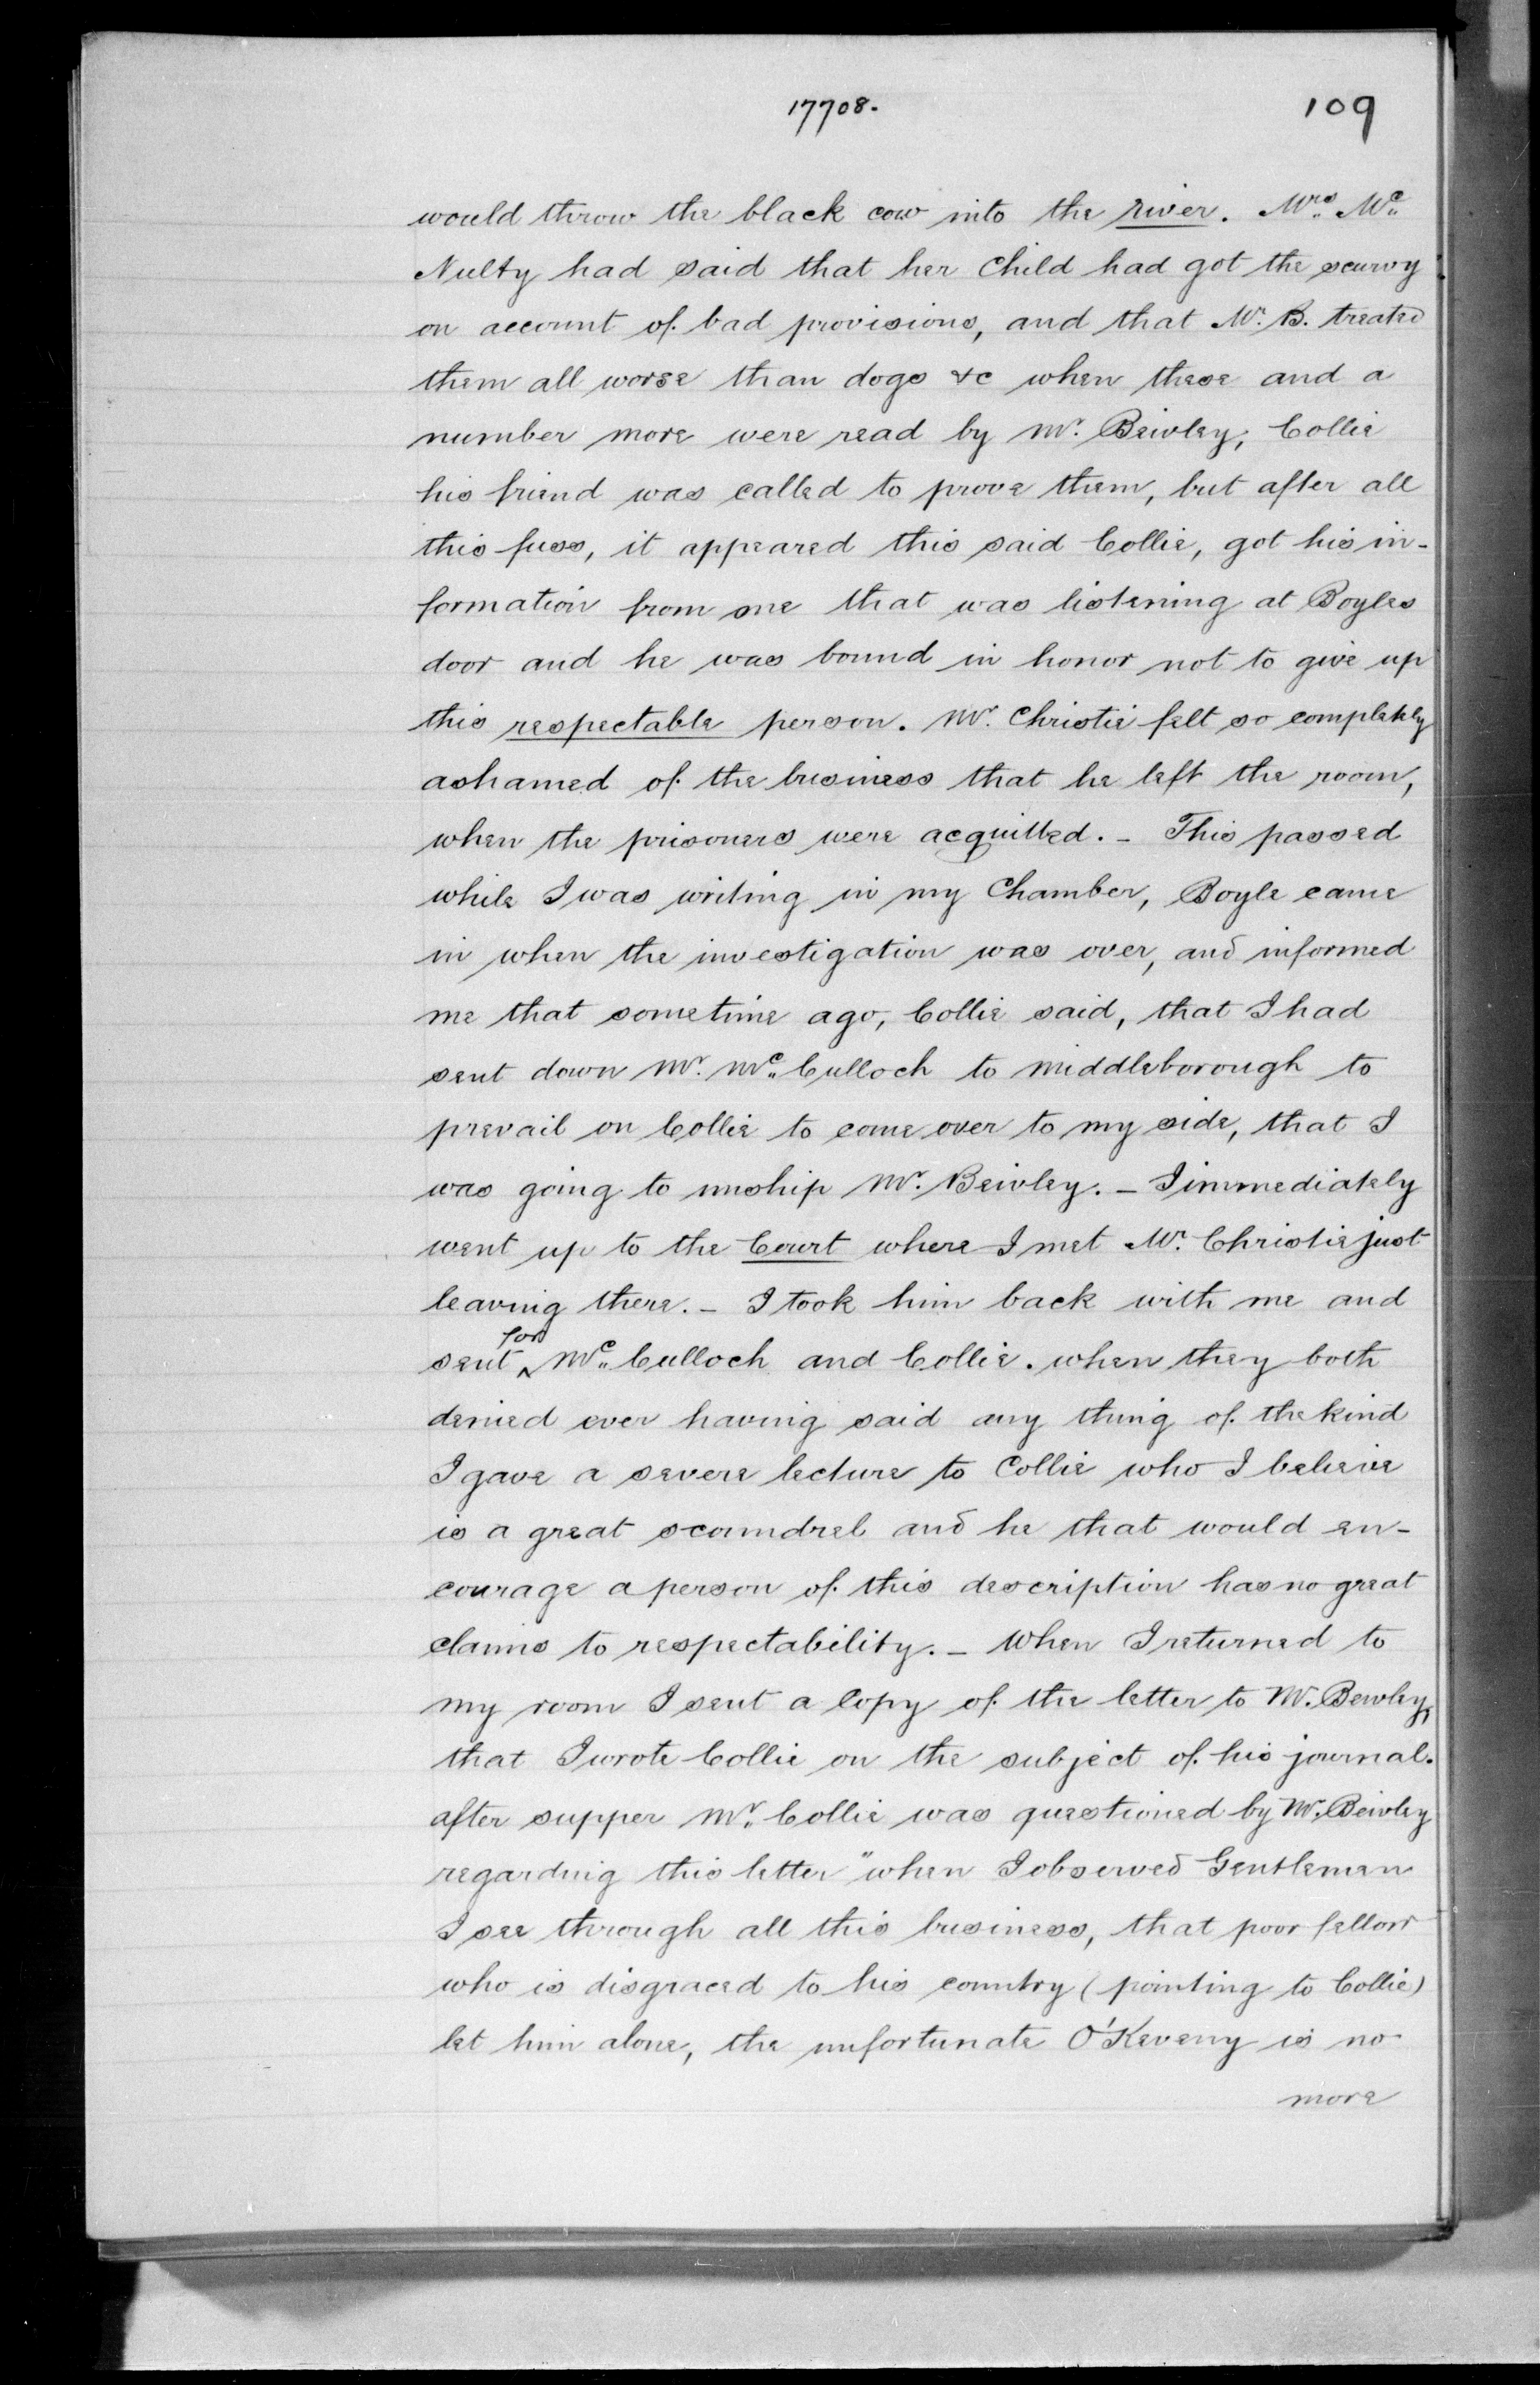 17708.
109
would throw the black cow into the river. Mrs. Mc.
Nulty had said that her child had got the scurvy
on account of bad provisions, and that Mr. B. treated
them all worse than dogs &c when these and a
number more were read by Mr. Bewley; Collie
his friend was called to prove them, but after all
this fuss, it appeared this said Collie, got his in-
formation from one that was listening at Boyles
door and he was bound in honor not to give up
this respectable person. Mr. Christie felt so completely
ashamed of the business that he left the room,
when the prisoners were acquitted. - This passed
while I was writing in my Chamber, Boyle came
in when the investigation was over, and informed
me that sometime ago, Collie said, that I had
sent down Mr. Mc.Culloch to Middleborough to
prevail on Collie to come over to my side, that I
was going to unship Mr. Bewley. - I immediately
went up to the Court where I met Mr. Christie just
leaving there. - I took him back with me and
sent for Mc.Culloch and Collie. when they both
denied ever having said any thing of the kind
I gave a severe lecture to Collie who I believe
is a great scoundrel and he that would en-
courage a person of this description has no great
claims to respectability. - When I returned to
my room I sent a Copy of the letter to Mr. Bewley,
that I wrote Collie on the subject of his journal.
after supper Mr. Collie was questioned by Mr. Bewley
regarding this letter "when I observed Gentlemen
I see through all this business, that poor fellow
who is disgraced to his country (pointing to Collie)
let him alone, the unfortunate O'Keveny is no
more